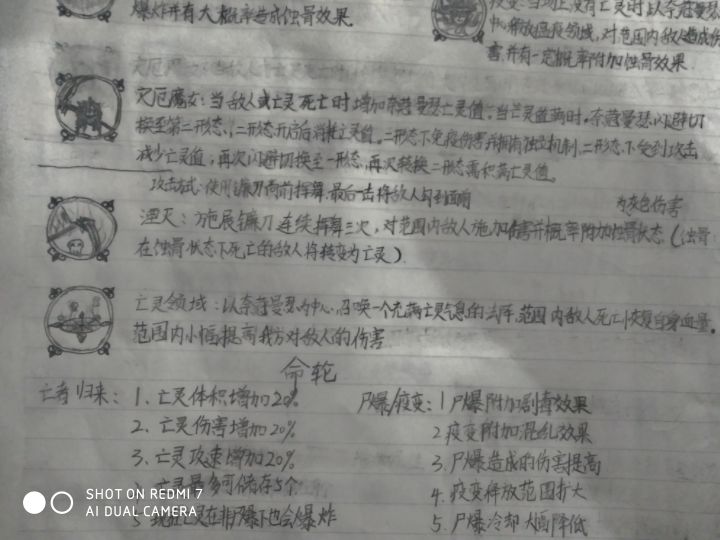 爆炸并有大概率造成蚀骨效果.
疫变:当场上没有亡灵时以奈菲曼瑟
中心释放瘟疫领域,对范围内敌人造成伤
害,并有一定概率附加蚀骨效果.
灾厄魔女:当敌人或亡灵死亡时增加奈菲曼瑟亡灵值,当亡灵值满时,奈菲曼瑟闪避切
换至第二形态,二形态开启后消耗亡灵值,二形态下免疫伤害并拥有独立机制,二形态下受到攻击
减少亡灵值,再次闪避切换至一形态,再次转换二形态需积满亡灵值。
攻击方式:使用镰刀向前挥舞,最后一击将敌人勾到面前
为灰色伤害
湮灭:施展镰刀连续挥舞三次,对范围内敌人施加伤害并概率附加蚀骨状态(蚀骨:
在蚀骨状态下死亡的敌人将转变为亡灵).
亡灵领域:以奈菲曼瑟为中心,召唤一个充满亡灵气息的法阵,范围内敌人死亡恢复自身血量。
范围内小幅提高我方对敌人的伤害
命轮
亡者归来:1、亡灵体积增加20%
2、亡灵伤害增加20%
3、亡灵攻速增加20%
亡灵最多可储存5个
亡灵在非尸爆下也会爆炸
尸爆/疫变:1尸爆附加剧毒效果
2疫变附加混乱效果
3.尸爆造成的伤害提高
4.疫变释放范围扩大
5.尸爆冷却大幅降低
SHOT ON REDMI 7
AI DUAL CAMERA